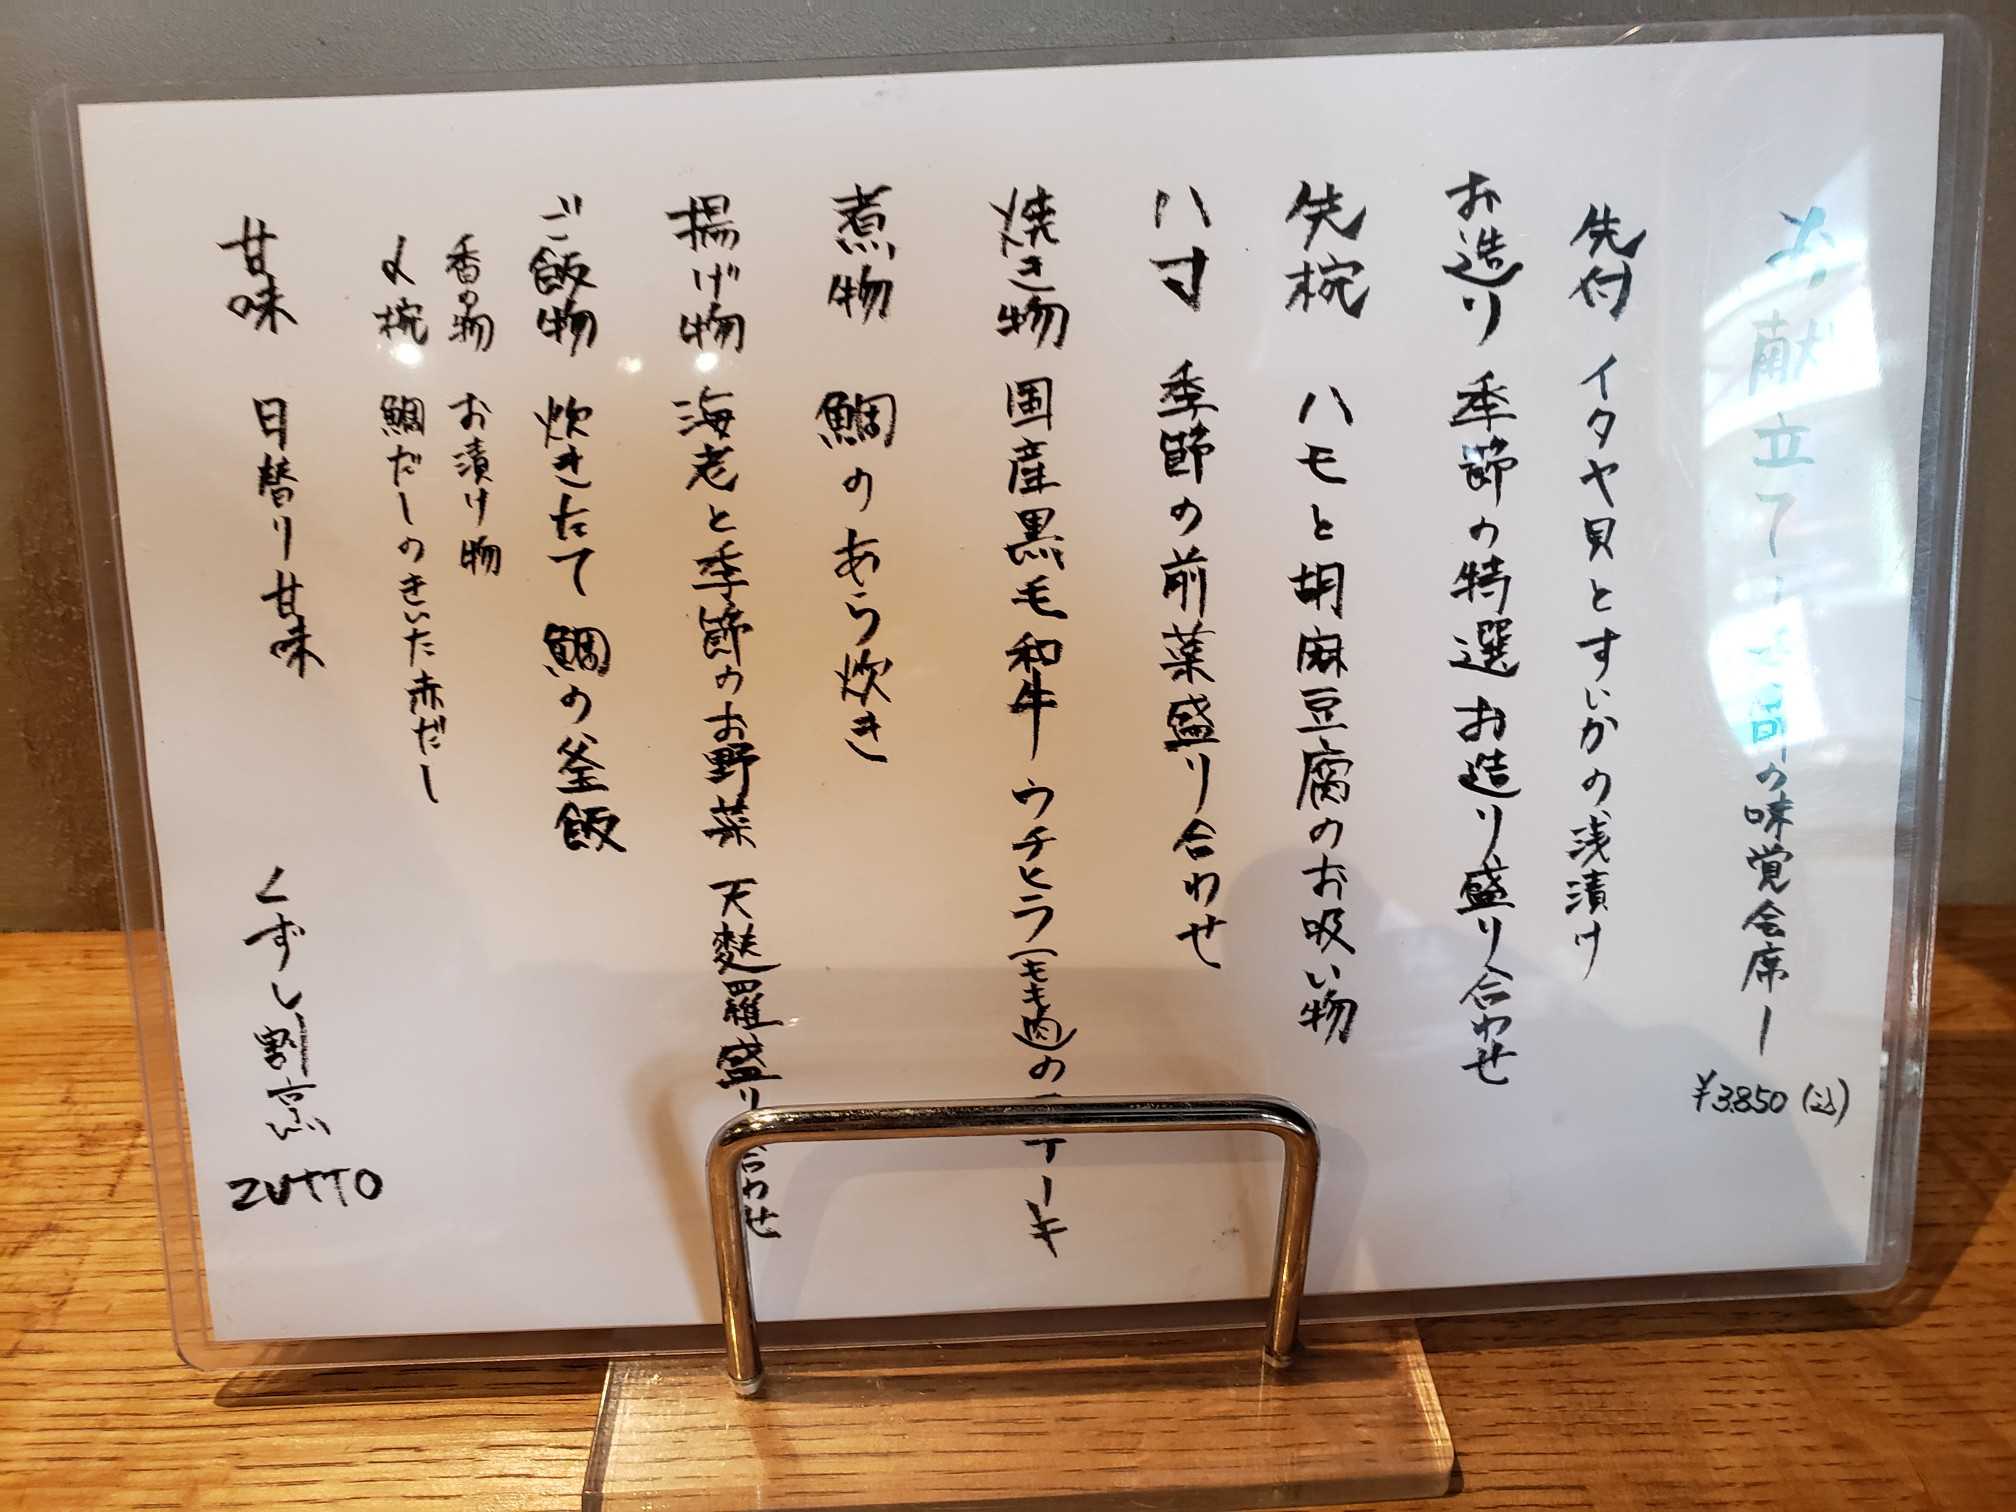 お献立て の味覚会席ー
¥3,850(込)
先付 イタヤ貝とすいかの浅漬け
お造り 季節の特選お造り盛り合わせ
先椀 ハモと胡麻豆腐のお吸い物
八寸 季節の前菜盛り合わせ
焼き物 国産黒毛和牛ウチヒラ(モモ肉)の
煮物 鯛のあら炊き
揚げ物 海老と季節のお野菜 天麩羅盛り合わせ
ご飯物 炊きたて 鯛の釜飯
香の物 お漬け物
〆椀 鯛だしのきいた赤だし
甘味 日替り甘味
くずし割烹 ZUTTO